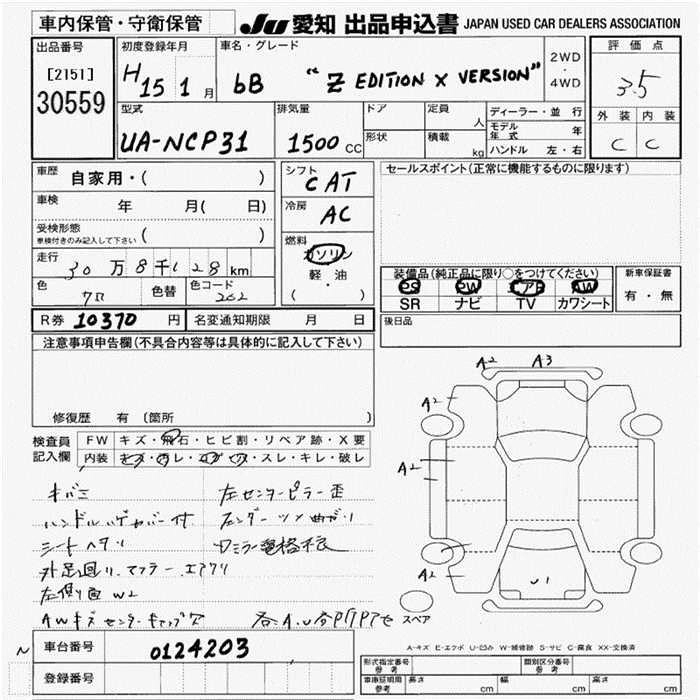 車内保管・守衛保管
JU 愛知 出品申込書 JAPAN USED CAR DEALERS ASSOCIATION
出品番号
[2151]
30559
初度登録年月
H15 1月
車名・グレード
bB "Z EDITION X VERSION"
2WD
・
4WD
評価点
3.5
外装 内装
C C
型式
UA-NCP31
排気量
1500 CC
ドア
形状
定員
人
積載
kg
ディーラー・並行
モデル年式 年
ハンドル 左・右
車歴
自家用・( )
車検
年 月( 日)
受検形態
車検付きのみ記入して下さい ( )
走行
30万8千128km
色
色替
色コード
202
シフト
CAT
冷房
AC
燃料
ガソリン
軽・油
( )
セールスポイント(正常に機能するものに限ります)
装備品(純正品に限り○をつけてください)
PS PW エアB AW
SR ナビ TV カワシート
新車保証書
有・無
後日品
R券 10370 円
名変通知期限 月 日
注意事項申告欄(不具合内容等は具体的に記入して下さい)
修復歴 有 〔箇所 〕
検査員
記入欄
FW キズ・飛石・ヒビ割・リペア跡・X要
内装 スレ・キレ・破レ
キバミ
左センターピラー歪
シートヘタリ
外足廻り、マフラー、エアクリ
左側面W2
AWキズ センターキャップ欠
A2 A3
A2
A2
A2
U1
スペア
A-キズ E-エクボ U-凹み W-補修跡 S-サビ C-腐食 XX-交換済
N
車台番号
0124203
登録番号
形式指定番号
参考
類別区分番号
車庫証明用
参考
長さ cm
幅 cm
高さ cm